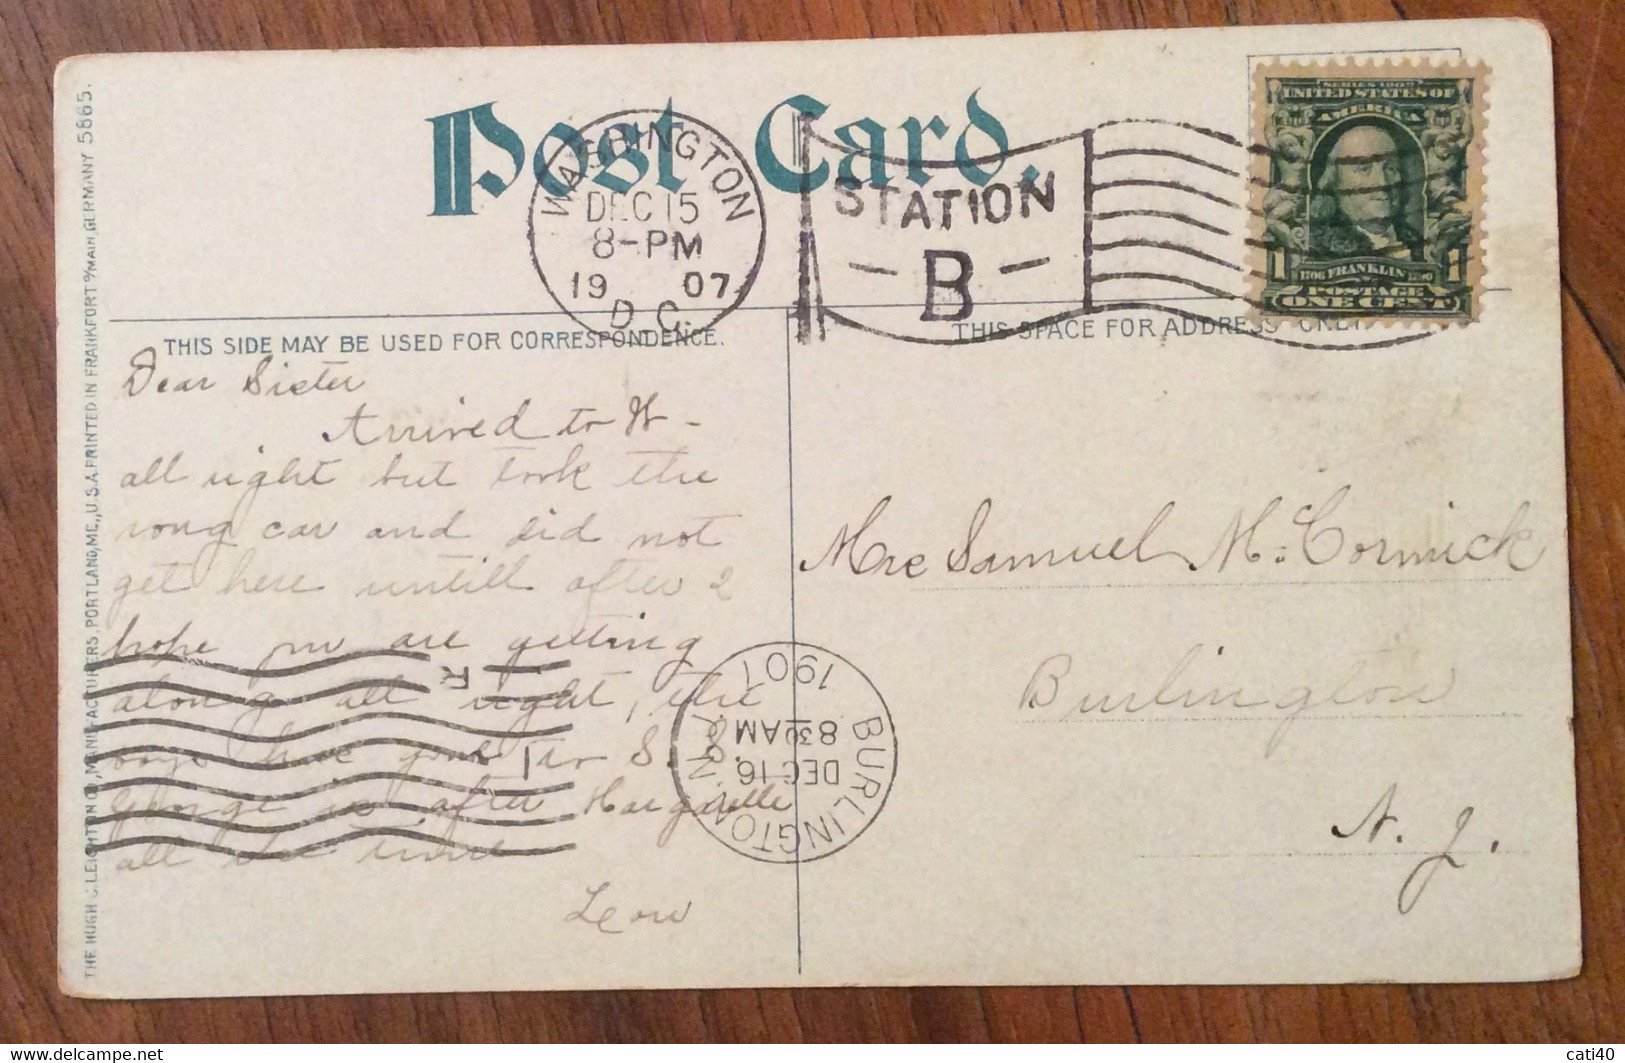 Post Card.
WASHINGTON
DEC 15
8-PM
1907
D.C.
STATION
B
SERIES 1902
UNITED STATES OF
AMERICA
1 1706 FRANKLIN 1790 1
POSTAGE
ONE CENT
THIS SIDE MAY BE USED FOR CORRESPONDENCE.
THIS SPACE FOR ADDRESS ONLY
Dear Sister
Arrived to W-
all right but took the
rong car and did not
get here untill after 2
hope you are getting
along all right, the
boys have gone to S. S.
George is after
all the time
Leon
Mrs Samuel McCormick
Burlington
N. J.
BURLINGTON, N.J.
DEC 16
8 30 AM
1907
R
1
THE HUGH C. LEIGHTON CO., MANUFACTURERS, PORTLAND, ME., U.S.A. PRINTED IN FRANKFORT o/MAIN, GERMANY 5865.
cati40